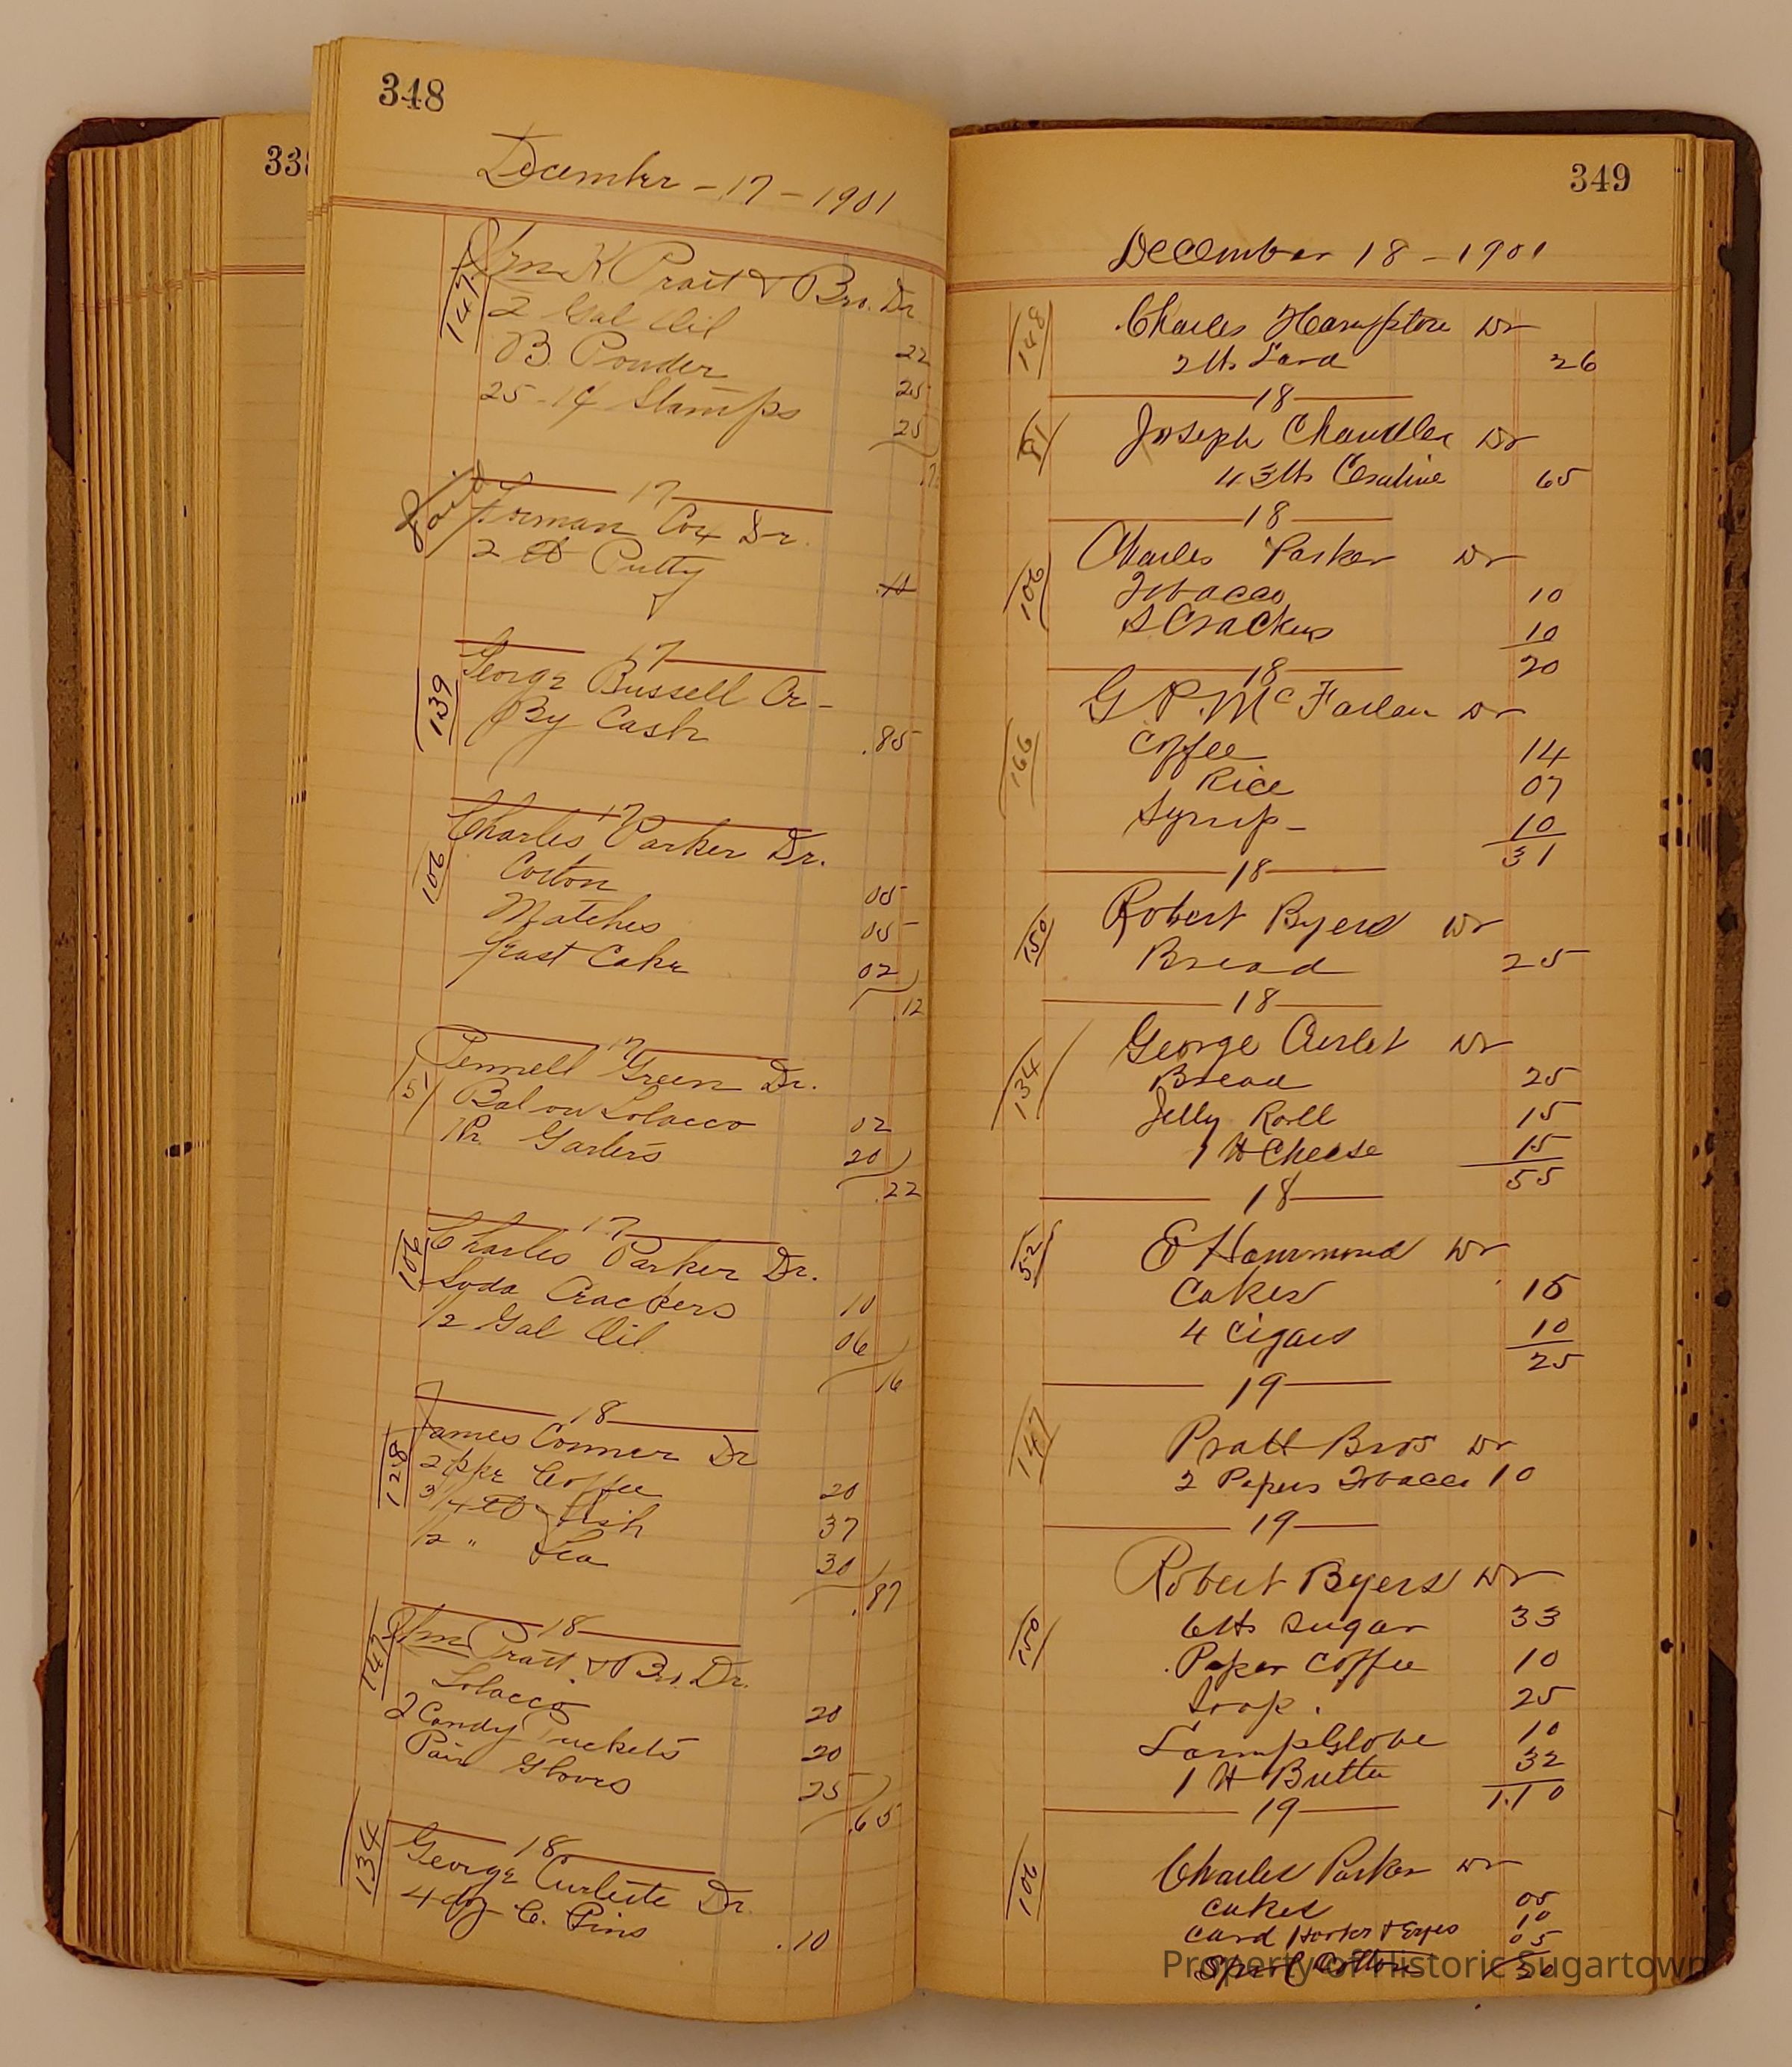 338
348
December - 17 - 1901
147
Wm K. Pratt & Bro. Dr.
2 Gal Oil 22
B. Powder 25
25 - 1¢ Stamps 25
.72
17
Paid
Furman Cox Dr.
2 lb Putty .11
17
139
George Bussell Cr -
By Cash .85
17
106
Charles Parker Dr.
Cotton 05
Matches 05
Yeast Cake 02
.12
17
51
Pennell Green Dr.
Bal on Tobacco 02
1 Pr. Garters 20
.22
17
106
Charles Parker Dr.
Soda Crackers 10
1/2 Gal Oil 06
16
18
128
James Connor Dr
2 pks Coffee 20
3 1/4 lb Fish 37
1/2 " Tea 30
.87
18
147
Wm Pratt & Bro. Dr.
Tobacco 20
2 Candy Buckets 20
Pair Gloves 25
.65
18
134
George Curlette Dr.
4 doz C. Pins .10
349
December 18 - 1901
148
Charles Hampton Dr
2 lbs Lard 26
18
81
Joseph Chandler Dr
43 lbs Cealine 65
18
106
Charles Parker Dr
Tobacco 10
S Crackers 10
20
18
166
G P. McFarlan Dr
Coffee 14
Rice 07
Syrup - 10
31
18
150
Robert Byers Dr
Bread 25
18
134
George Curlet Dr
Bread 25
Jelly Roll 15
1 lb Cheese 15
55
18
52
E Hammond Dr
Cakes 15
4 Cigars 10
25
19
147
Pratt Bros Dr
2 Papers Tobacco 10
19
150
Robert Byers Dr
6 lbs Sugar 33
Paper Coffee 10
Soap. 25
Lamp Globe 10
1 lb Butter 32
1.10
19
106
Charles Parker Dr
Cakes 05
Card Hooks & Eyes 10
Spool Cotton 05
20
Property of Historic Sugartown